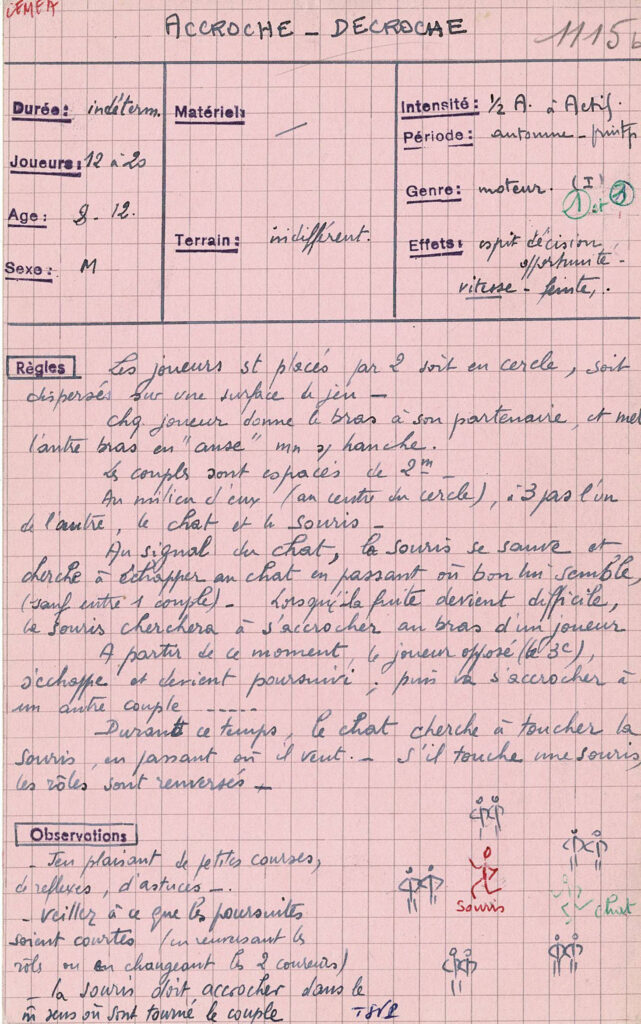 CEMEA
ACCROCHE – DECROCHE
1115b
Durée: indéterm.
Joueurs: 12 à 20
Age: 8 - 12.
Sexe: M
Matériel: —
Terrain: indifférent.
Intensité: 1/2 A. à Actif.
Période: automne - printp
Genre: moteur. (I)
1 et 3
Effets: esprit décision,
opportunité -
vitesse - feinte,.
Règles
Les joueurs st placés par 2 soit en cercle, soit
dispersés sur une surface de jeu –
chq joueur donne le bras à son partenaire, et met
l'autre bras en "anse" mn s/ hanche.
Les couples sont espacés de 2m –
Au milieu d'eux (au centre du cercle), à 3 pas l'un
de l'autre, le chat et la souris –
Au signal du chat, la souris se sauve et
cherche à échapper au chat en passant où bon lui semble,
(sauf entre 1 couple) – Lorsque la fuite devient difficile,
la souris cherchera à s'accrocher au bras d'un joueur
A partir de ce moment, le joueur opposé (le 3e),
s'échappe et devient poursuivi ; puis va s'accrocher à
un autre couple -----
Durant ce temps, le chat cherche à toucher la
souris, en passant où il veut. – S'il touche une souris,
les rôles sont renversés –
Observations
– Jeu plaisant de petites courses,
de réflexes, d'astuces –.
– veillez à ce que les poursuites
soient courtes (en renversant les
rôls ou en changeant les 2 coureurs)
– la souris doit accrocher dans le
m̂ sens où sont tourné le couple
souris
chat
TSVP